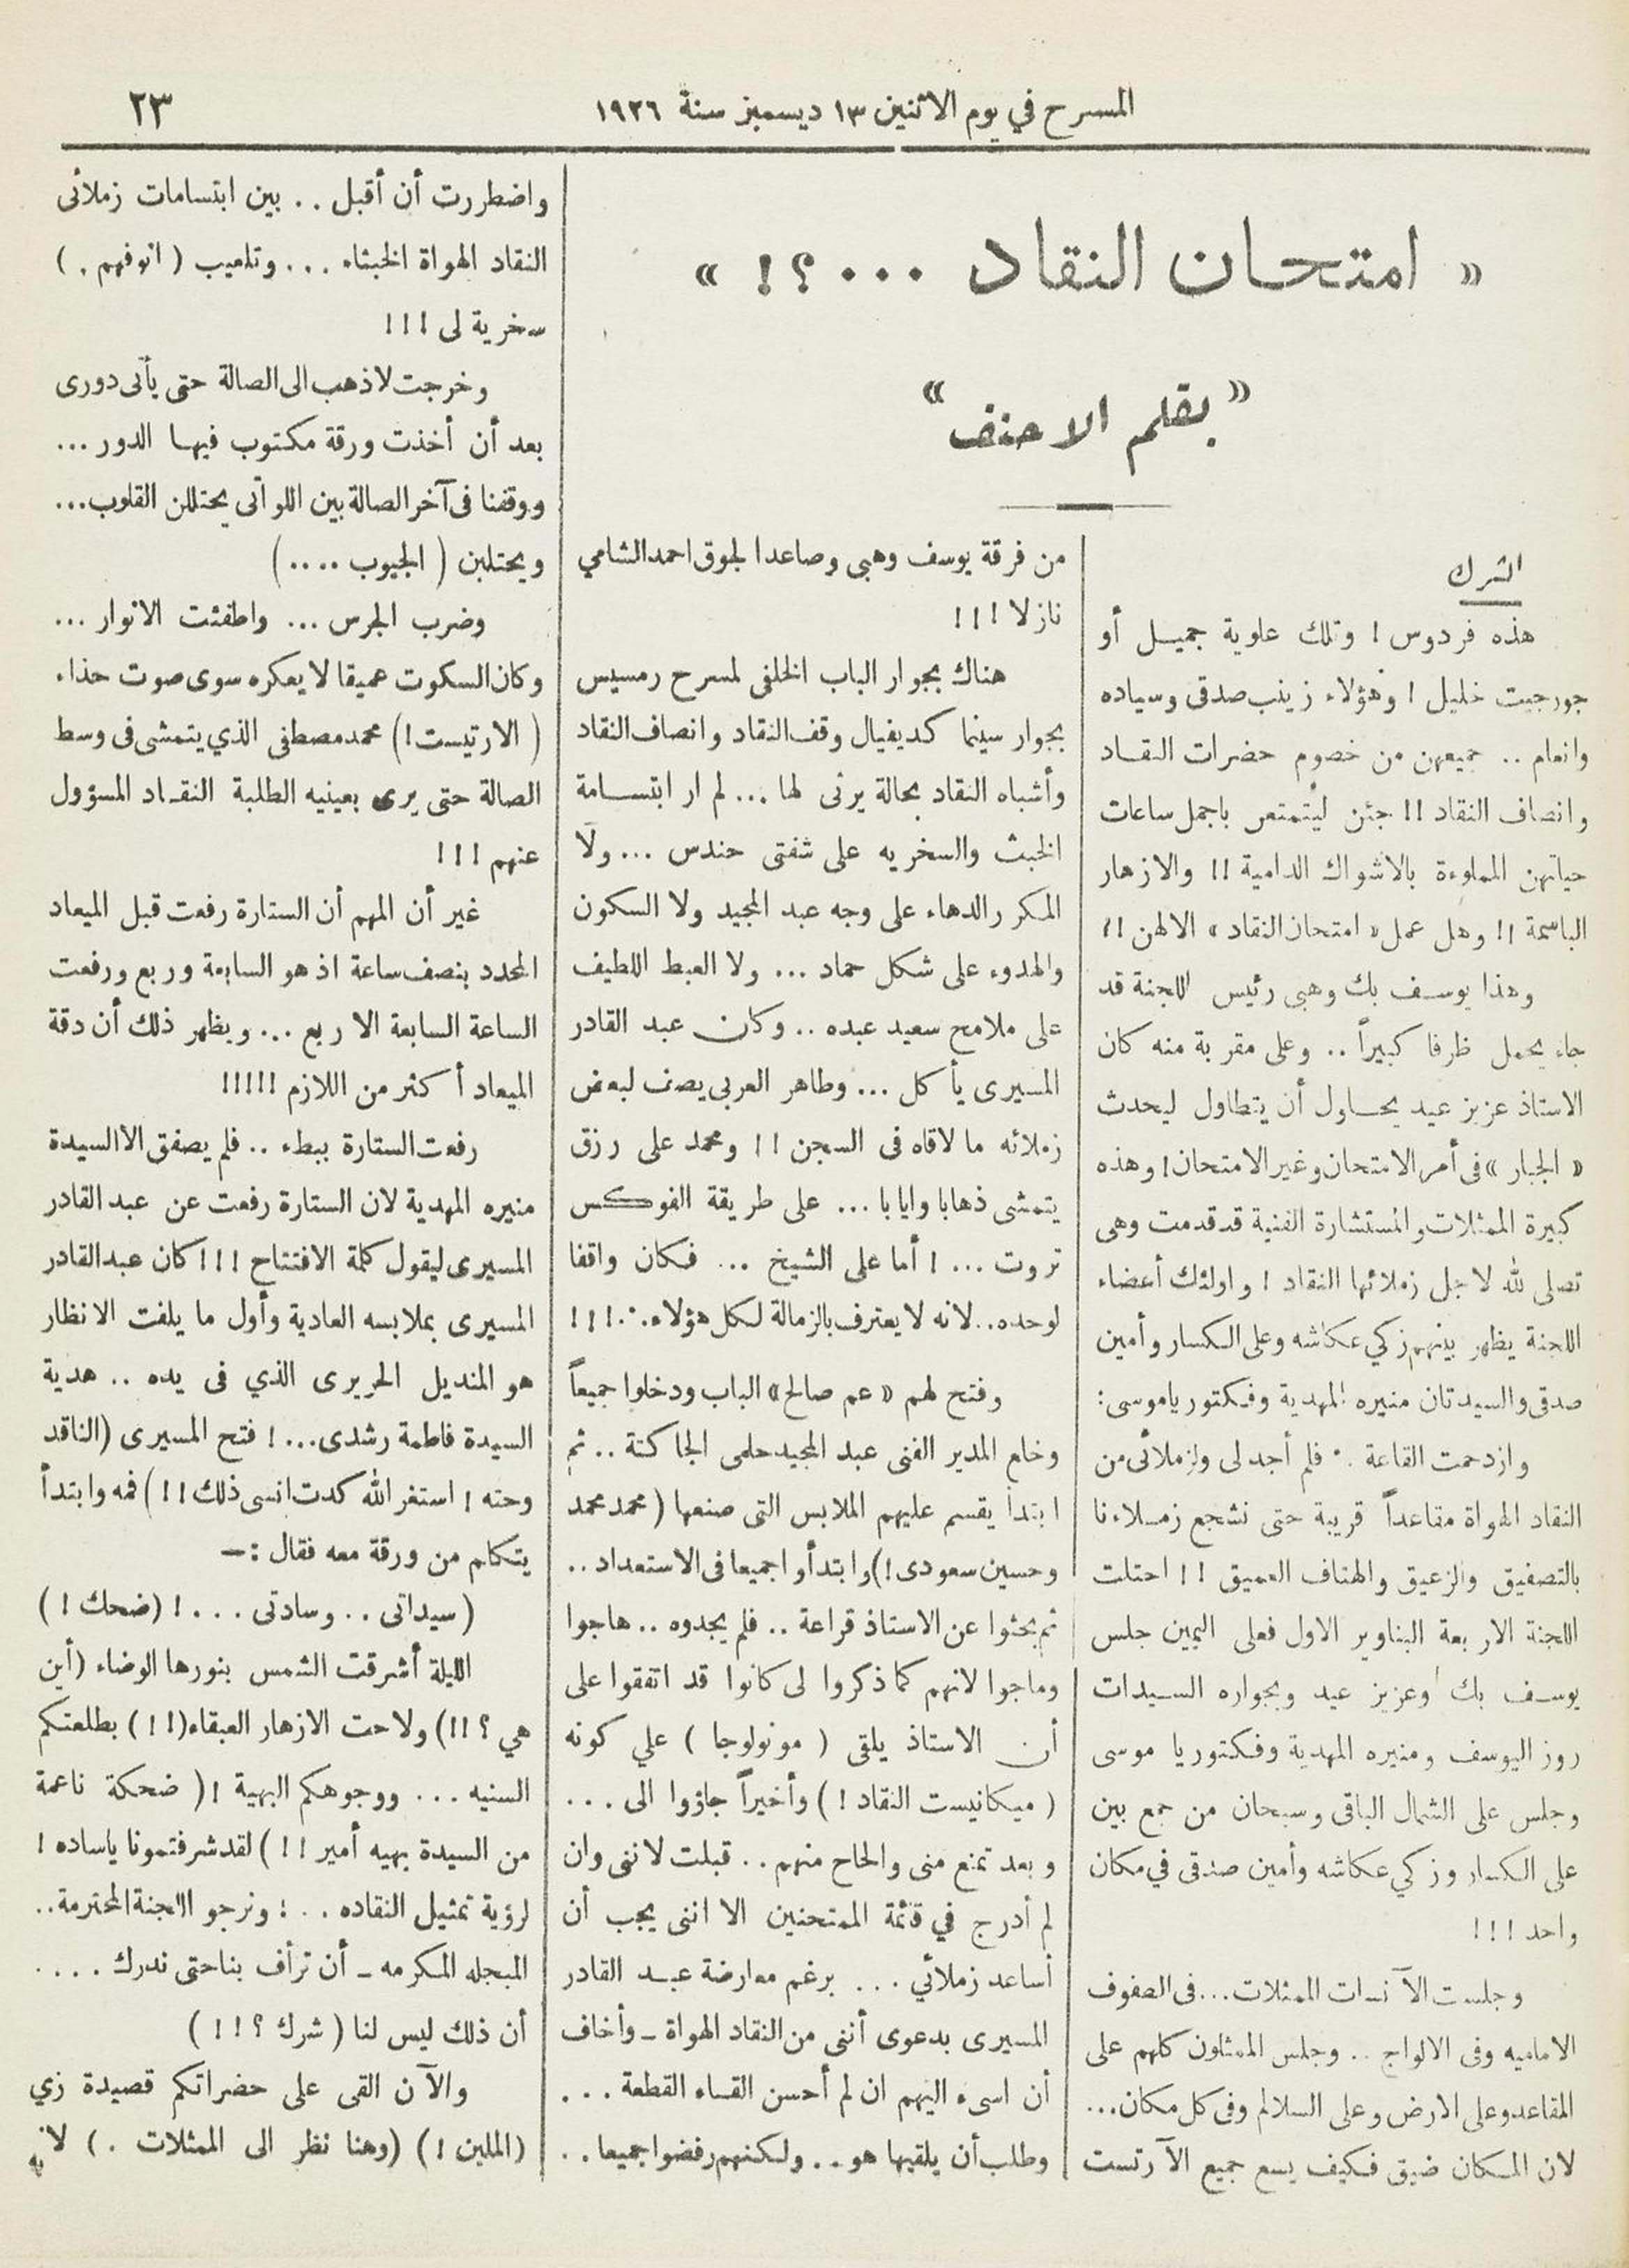 المسرح في يوم الاثنين ١٣ ديسمبر سنة ١٩٢٦
٢٣
« امتحان النقاد ...؟! »
« بقلم الاحنف »
الشرك
هذه فردوس ! وتلك علوية جميل أو
جورجيت خليل ! وهؤلاء زينب صدقى وسياده
وانعام .. جميعهن من خصوم حضرات النقاد
وانصاف النقاد !! جئن ليتمتعن باجمل ساعات
حياتهن المملوءة بالاشواك الدامية !! والازهار
الباسمة !! وهل عمل « امتحان النقاد » الا لهن !!
وهذا يوسف بك وهبى رئيس اللجنة قد
جاء يحمل ظرفا كبيراً .. وعلى مقربة منه كان
الاستاذ عزيز عيد يحاول أن يتطاول ليحدث
« الجبار » فى أمر الامتحان وغير الامتحان! وهذه
كبيرة الممثلات والمستشارة الفنية قد قدمت وهى
تصلى لله لاجل زملائها النقاد ! واولئك أعضاء
اللجنة يظهر بينهم زكي عكاشه وعلى الكسار وأمين
صدقى والسيدتان منيره المهدية وفكتوريا موسى :
وازدحمت القاعة .. فلم أجد لى ولزملائى من
النقاد الهواة مقاعداً قريبة حتى نشجع زملاءنا
بالتصفيق والزعيق والهتاف العميق !! احتلت
اللجنة الاربعة البناوير الاول فعلى اليمين جلس
يوسف بك وعزيز عيد وبجواره السيدات
روز اليوسف ومنيره المهدية وفكتوريا موسى
وجلس على الشمال الباقى وسبحان من جمع بين
على الكسار وزكي عكاشه وأمين صدقى في مكان
واحد !!!
وجلست الآنسات الممثلات ... فى الصفوف
الاماميه وفى الالواج .. وجلس الممثلون كلهم على
المقاعد وعلى الارض وعلى السلالم وفى كل مكان ...
لان المكان ضيق فكيف يسع جميع الآرتست
من فرقة يوسف وهبى وصاعدا لجوق احمد الشامي
نازلا !!!
هناك بجوار الباب الخلفى لمسرح رمسيس
بجوار سينما كديفيال وقف النقاد وانصاف النقاد
وأشباه النقاد بحالة يرثى لها ... لم ار ابتسامة
الخبث والسخريه على شفتى حندس ... ولا
المكر والدهاء على وجه عبد المجيد ولا السكون
والهدوء على شكل حماد ... ولا العبط اللطيف
على ملامح سعيد عبده .. وكان عبد القادر
المسيرى يأكل ... وطاهر العربى يصف لبعض
زملائه ما لاقاه فى السجن !! ومحمد على رزق
يتمشى ذهابا وايابا ... على طريقة الفوكس
تروت ... ! أما على الشيخ ... فكان واقفا
لوحده .. لانه لا يعترف بالزمالة لكل هؤلاء ..!!!
وفتح لهم « عم صالح » الباب ودخلوا جميعاً
وخلع المدير الفنى عبد المجيد حلمى الجاكتة .. ثم
ابتدأ يقسم عليهم الملابس التى صنعها ( محمد محمد
وحسين سعودى !) وابتدأوا جميعا فى الاستعداد ..
ثم بحثوا عن الاستاذ قراعة .. فلم يجدوه .. هاجوا
وماجوا لانهم كما ذكروا لى كانوا قد اتفقوا على
أن الاستاذ يلقى ( مونولوجا ) علي كونه
( ميكانيست النقاد ! ) وأخيراً جاؤوا الى ...
وبعد تمنع منى والحاح منهم .. قبلت لاننى وان
لم أدرج في قائمة الممتحنين الا اننى يجب أن
أساعد زملائي ... برغم معارضة عبد القادر
المسيرى بدعوى أننى من النقاد الهواة ـ وأخاف
أن اسىء اليهم ان لم أحسن القاء القطعة ...
وطلب أن يلقيها هو .. ولكنهم رفضوا جميعا ..
واضطررت أن أقبل .. بين ابتسامات زملائى
النقاد الهواة الخبثاء ... وتلعيب ( انوفهم . )
سخرية لى !!!
وخرجت لاذهب الى الصالة حتى يأتى دورى
بعد أن أخذت ورقة مكتوب فيها الدور ...
ووقفنا فى آخر الصالة بين اللواتى يحتللن القلوب ...
ويحتلبن ( الجيوب .... )
وضرب الجرس ... واطفئت الانوار ...
وكان السكوت عميقا لا يعكره سوى صوت حذاء
( الارتيست !) محمد مصطفى الذي يتمشى فى وسط
الصالة حتى يرى بعينيه الطلبة النقاد المسؤول
عنهم !!!
غير أن المهم أن الستارة رفعت قبل الميعاد
المحدد بنصف ساعة اذ هو السابعة وربع ورفعت
الساعة السابعة الا ربع ... ويظهر ذلك أن دقة
الميعاد أكثر من اللازم !!!!!
رفعت الستارة ببطء .. فلم يصفق الا السيدة
منيره المهدية لان الستارة رفعت عن عبد القادر
المسيرى ليقول كلمة الافتتاح !!! كان عبد القادر
المسيرى بملابسه العادية وأول ما يلفت الانظار
هو المنديل الحريرى الذي فى يده .. هدية
السيدة فاطمة رشدى ... ! فتح المسيرى (الناقد
وحته ! استغر الله كدت انسى ذلك !! ) فمه وابتدأ
يتكلم من ورقة معه فقال :ـ
( سيداتى .. وسادتى ... ! (ضحك ! )
الليلة أشرقت الشمس بنورها الوضاء (أين
هي ؟!!) ولاحت الازهار العبقاء (!! ) بطلعتكم
السنيه ... ووجوهكم البهية !( ضحكة ناعمة
من السيدة بهيه أمير !! ) لقد شرفتمونا ياساده !
لرؤية تمثيل النقاده .. ؛ ونرجو اللجنة المحترمة ..
المبجله المكرمه ـ أن ترأف بنا حتى ندرك ....
أن ذلك ليس لنا ( شرك ؟!! )
والآن القى على حضراتكم قصيدة زي
(الملبن ! ) (وهنا نظر الى الممثلات . ) لانه